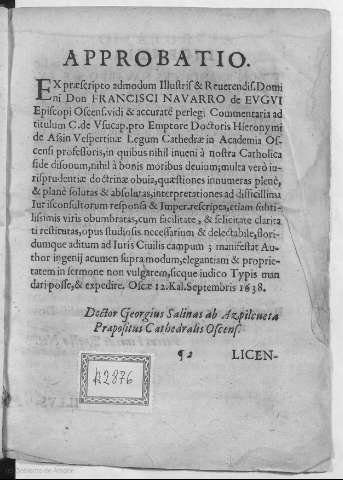 APPROBATIO.
EX præscripto admodum Illustris & Reuerendis. Domi
ni Don FRANCISCI NAVARRO de EVGVI
Episcopi Oscens. vidi & accuratè perlegi Commentaria ad
titulum C. de Vsucap. pro Emptore Doctoris Hieronymi
de Assin Vespertinæ Legum Cathedræ in Academia Os-
censi professoris, in quibus nihil inueni à nostra Catholica
fide disonum, nihil à bonis moribus deuium; multa verò iu-
risprudentiæ doctrinæ obuia, quæstiones innumeras plenè,
& planè solutas & absolutas, interpretationes ad difficillima
Iurisconsultorum responsa & Imper. rescripta, etiam subti-
lissimis viris obumbratas, cum facilitate, & felicitate clarita
ti restitutas, opus studiosis necessarium & delectabile, flori-
dumque aditum ad Iuris Ciuilis campum; manifestat Au-
thor ingenij acumen supra modum, elegantiam & proprie-
tatem in sermone non vulgarem, sicque iudico Typis man
dari posse, & expedire. Oscæ 12. Kal. Septembris 1638.
Doctor Georgius Salinas ab Azpilcueta
Præpositus Cathedralis Oscens.
¶2 LICEN-
A2876
(c) Gobierno de Aragón